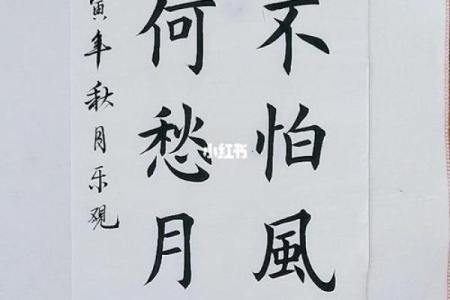 不怕風
何愁月
寅年秋月乐观
小红书